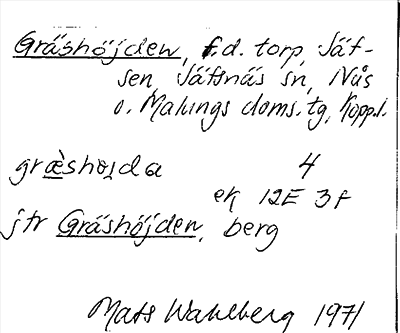 Gräshöjden, f.d. torp, Säf-
sen, Säfsnäs sn, Nås
o. Malungs doms. tg, Kopp. l.
græ̀shɷɪda 4
ek 12E 3f
jfr Gräshöjden, berg
Mats Wahlberg 1971